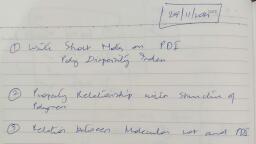 ① Write Short Notes on PDI
Poly Dispersity Index
② Property Relationship with Structure of
Polymer
③ Relation between Molecular wt and PDI